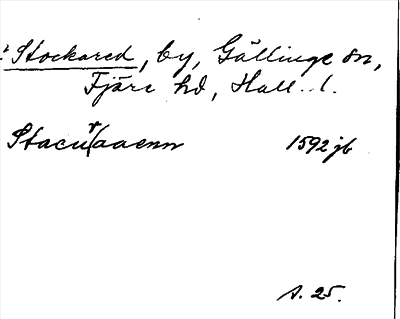 Stockared, by, Gällinge sn,
Fjäre hd, Hall. l.
Stacuraaenn 1592 jb
s. 25.